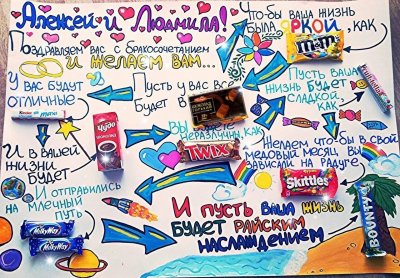 Алексей и Людмила!
Поздравляем вас с бракосочетанием
и желаем вам...
Что-бы ваша жизнь
была яркой, как
m&m's
Пусть ваша
жизнь будет
сладкой,
как
У вас будут
отличные
Kinder
дети
Пусть у вас все
будет в
Чудо
шоколад
вы
неразлучны, как
TWIX
Желаем что-бы в свой
медовый месяц, вы
зависали на радуге
Skittles
И в вашей
жизни
будет
И отправились
на млечный
путь
MilkyWay
MilkyWay
И пусть ваша жизнь
будет райским
наслаждением
BOUNTY